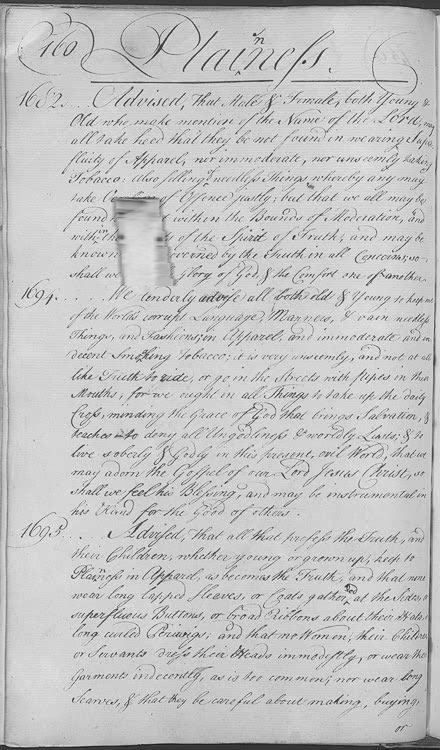 160 Plainness.
1682... Advised, that Male & Female, both Young &
Old who make mention of the Name of the Lord, may
all take heed that they be not found in wearing Super
fluity of Apparel, nor immoderate, nor unseemly taking
Tobacco: Also selling needless Things whereby any may
take of Offence justly; but that we all may be
found within the Bounds of Moderation, and
within the of the Spirit of Truth; and may be
known governed by the Truth in all Concerns, so
shall we Glory of God, & the Comfort one of another.
1694..... We tenderly advise all both old & Young to keep out
of the World's corrupt Language, Manners, & vain needless
Things, and Fashions, in Apparel, and immoderate and in
decent Smoking Tobacco; it is very unseemly, and not at all
like Truth to ride, or go in the Streets with pipes in their
Mouths; for we ought in all Things to take up the daily
Cross, minding the Grace of God that brings Salvation, &
teaches to deny all Ungodliness & worldly Lusts, & to
live soberly & Godly in this present, evil World, that we
may adorn the Gospel of our Lord Jesus Christ, so
shall we feel his Blessing, and may be instrumental in
his Hand for the Good of others.
1695... Advised, that all that profess the Truth, and
their Children, whether young or grown up, keep to
Plainness in Apparel, as becomes the Truth, and that none
wear long lapped Sleeves, or Coats gathered at the Sides, or
superfluous Buttons, or broad Ribbons about their Hats, or
long curled Periwigs, and that no Women, their Children
or Servants dress their Heads immodestly, or wear their
Garments indecently, as is too common; nor wear long
Scarves, & that they be careful about making, buying,
or